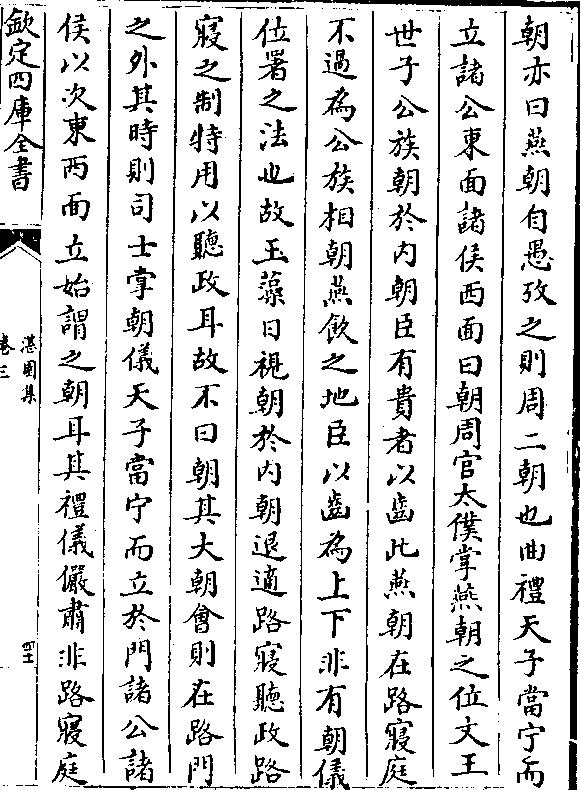 朝亦曰燕朝自愚攷之則周二朝也曲禮天子當宁而
立諸公東面諸侯西面曰朝周官太僕掌燕朝之位文王
世子公族朝於内朝臣有貴者以齒此燕朝在路寢庭
不過為公族相朝燕飲之地臣以齒為上下非有朝儀
位署之法也故玉藻曰視朝於内朝退適路寢聽政路
寢之制特用以聽政耳故不曰朝其大朝會則在路門
之外其時則司士掌朝儀天子當宁而立於門諸公諸
侯以次東西面立始謂之朝耳其禮儀儼肅非路寢庭
欽定四庫全書
湛園集
卷三